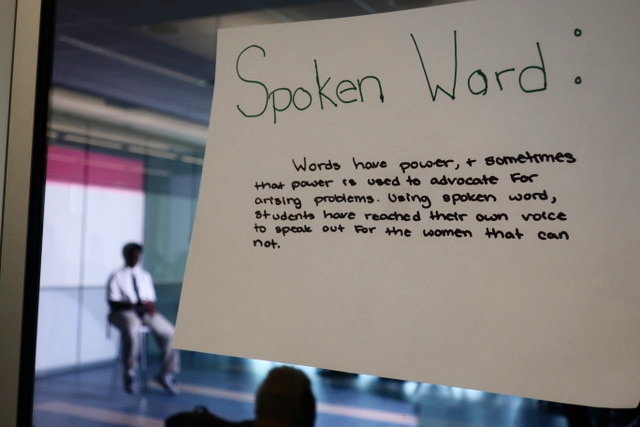 Spoken Word:
Words have power, + sometimes
that power is used to advocate for
arising problems. Using spoken word,
students have reached their own voice
to speak out for the women that can
not.